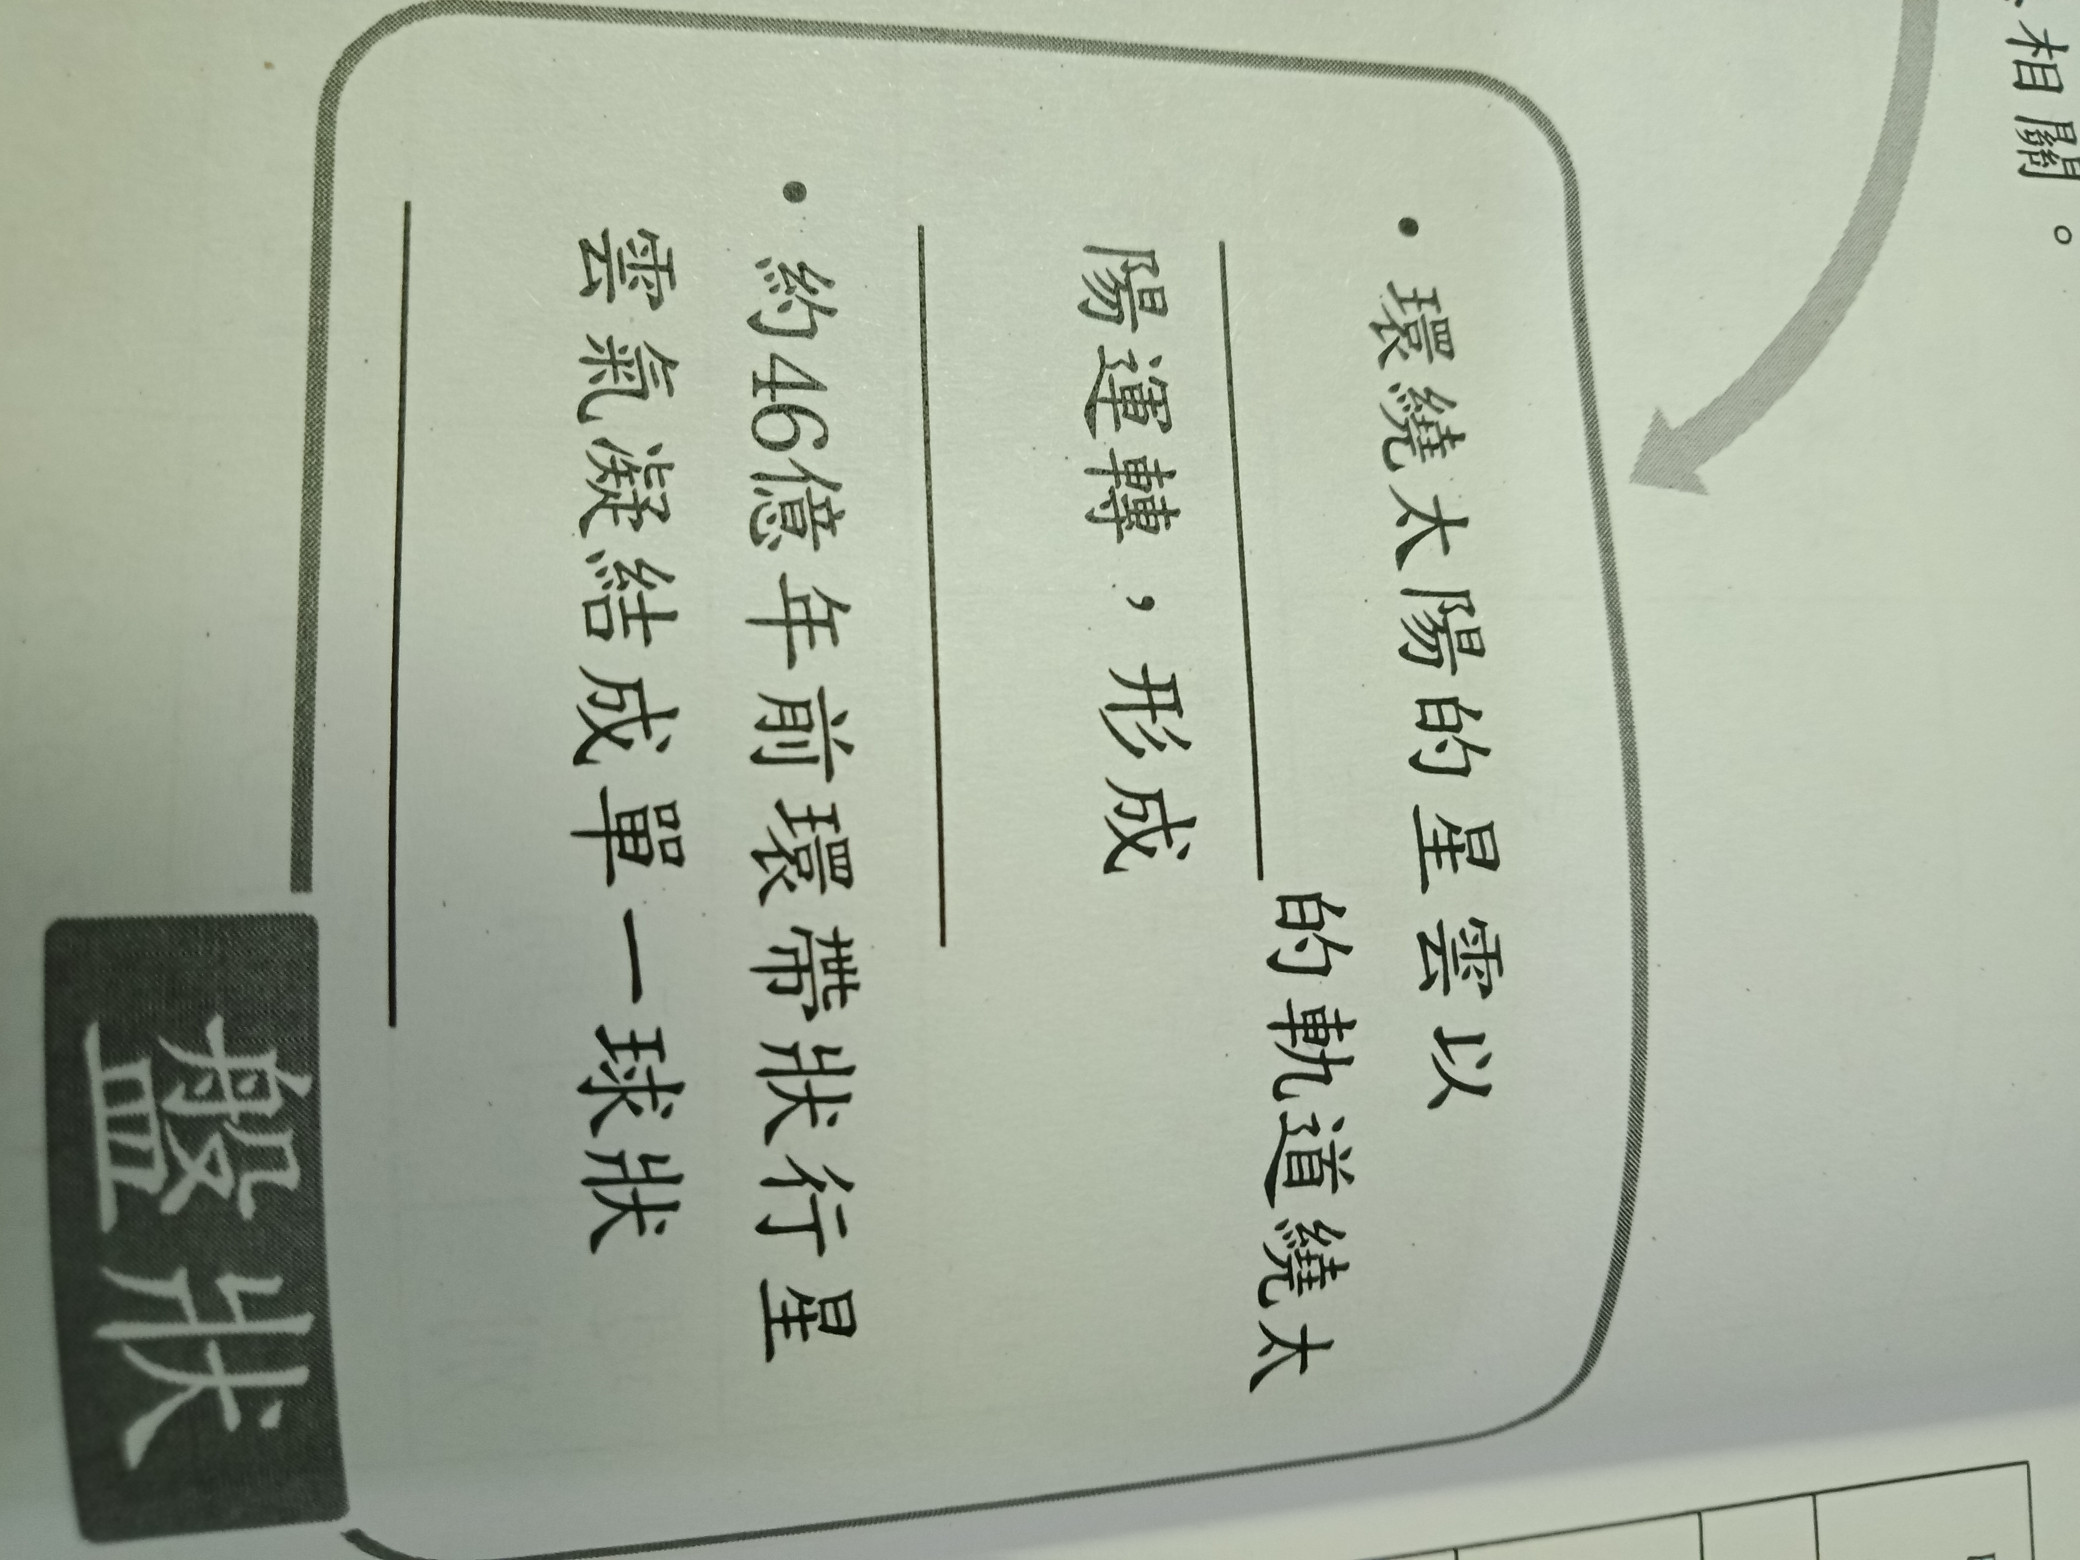 相關。
• 環繞太陽的星雲以
的軌道繞太
陽運轉，形成
• 約46億年前環帶狀行星
雲氣凝結成單一球狀
盤狀